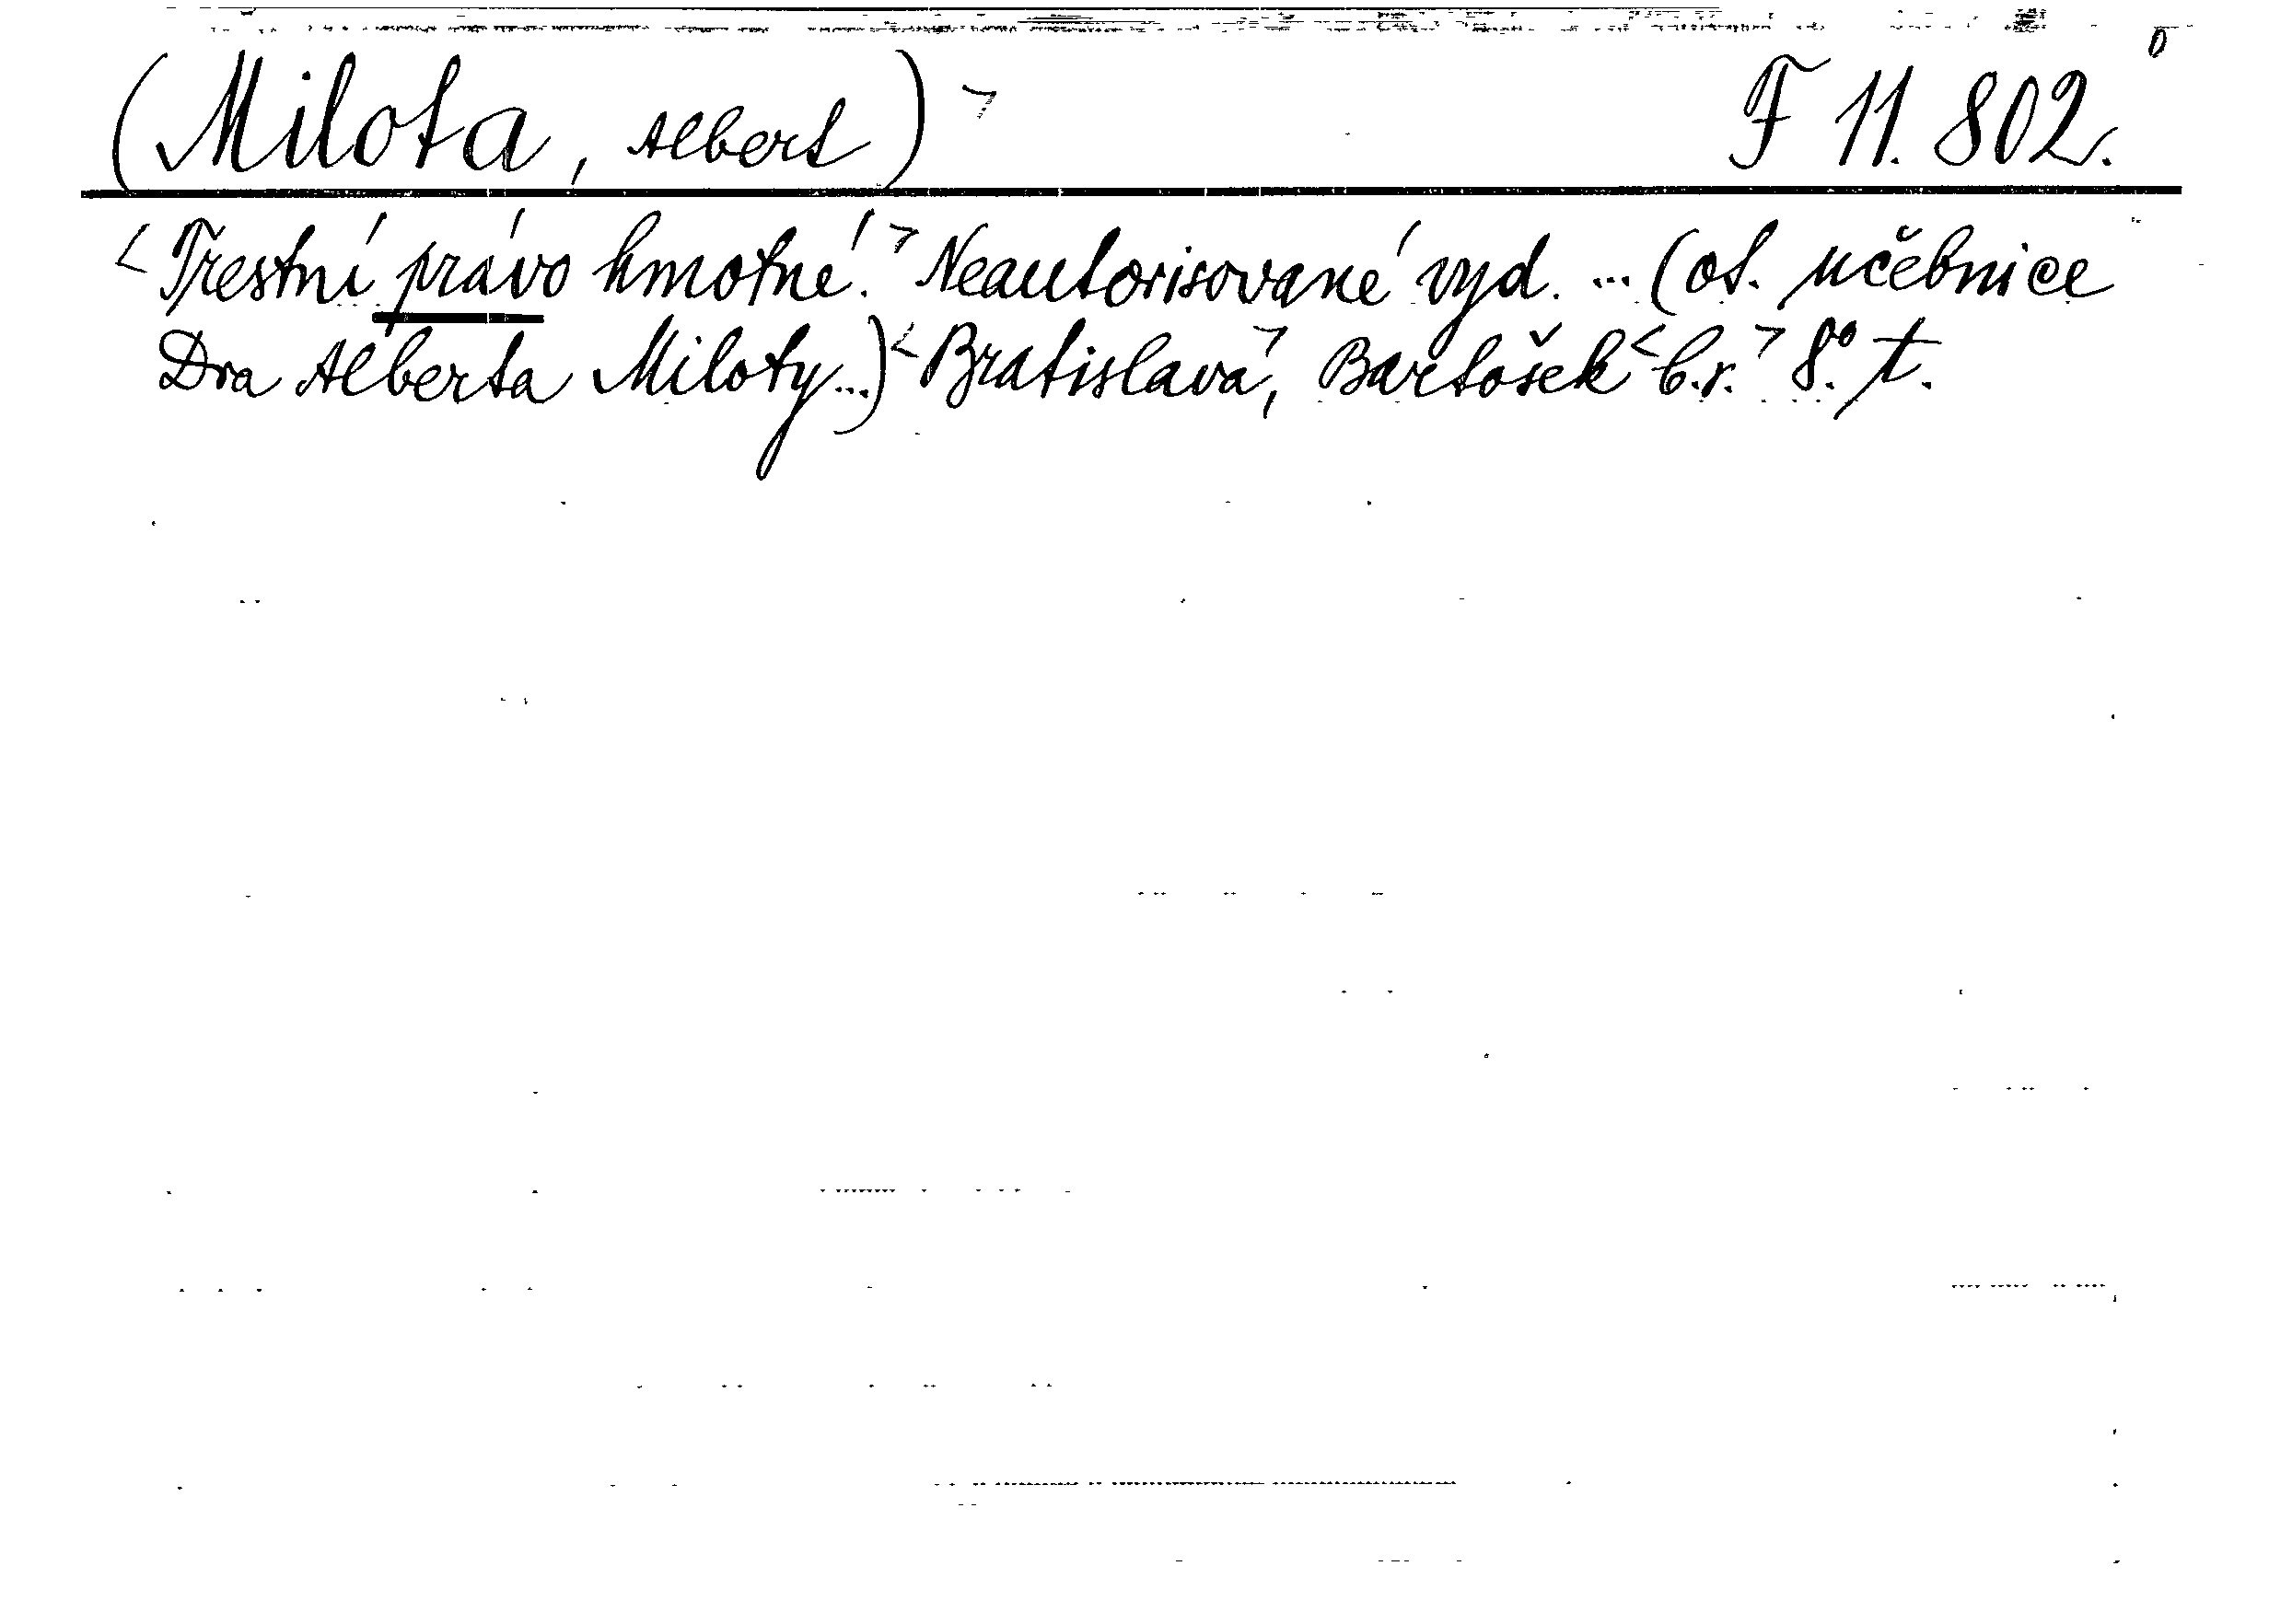 (Milota, Albert) > F 11.802.
< Trestní právo hmotné. > Neautorisované vyd. ... (ot. učebnice
Dra Alberta Miloty...) < Bratislava >, Bartošek < b.r. > 8°. t.